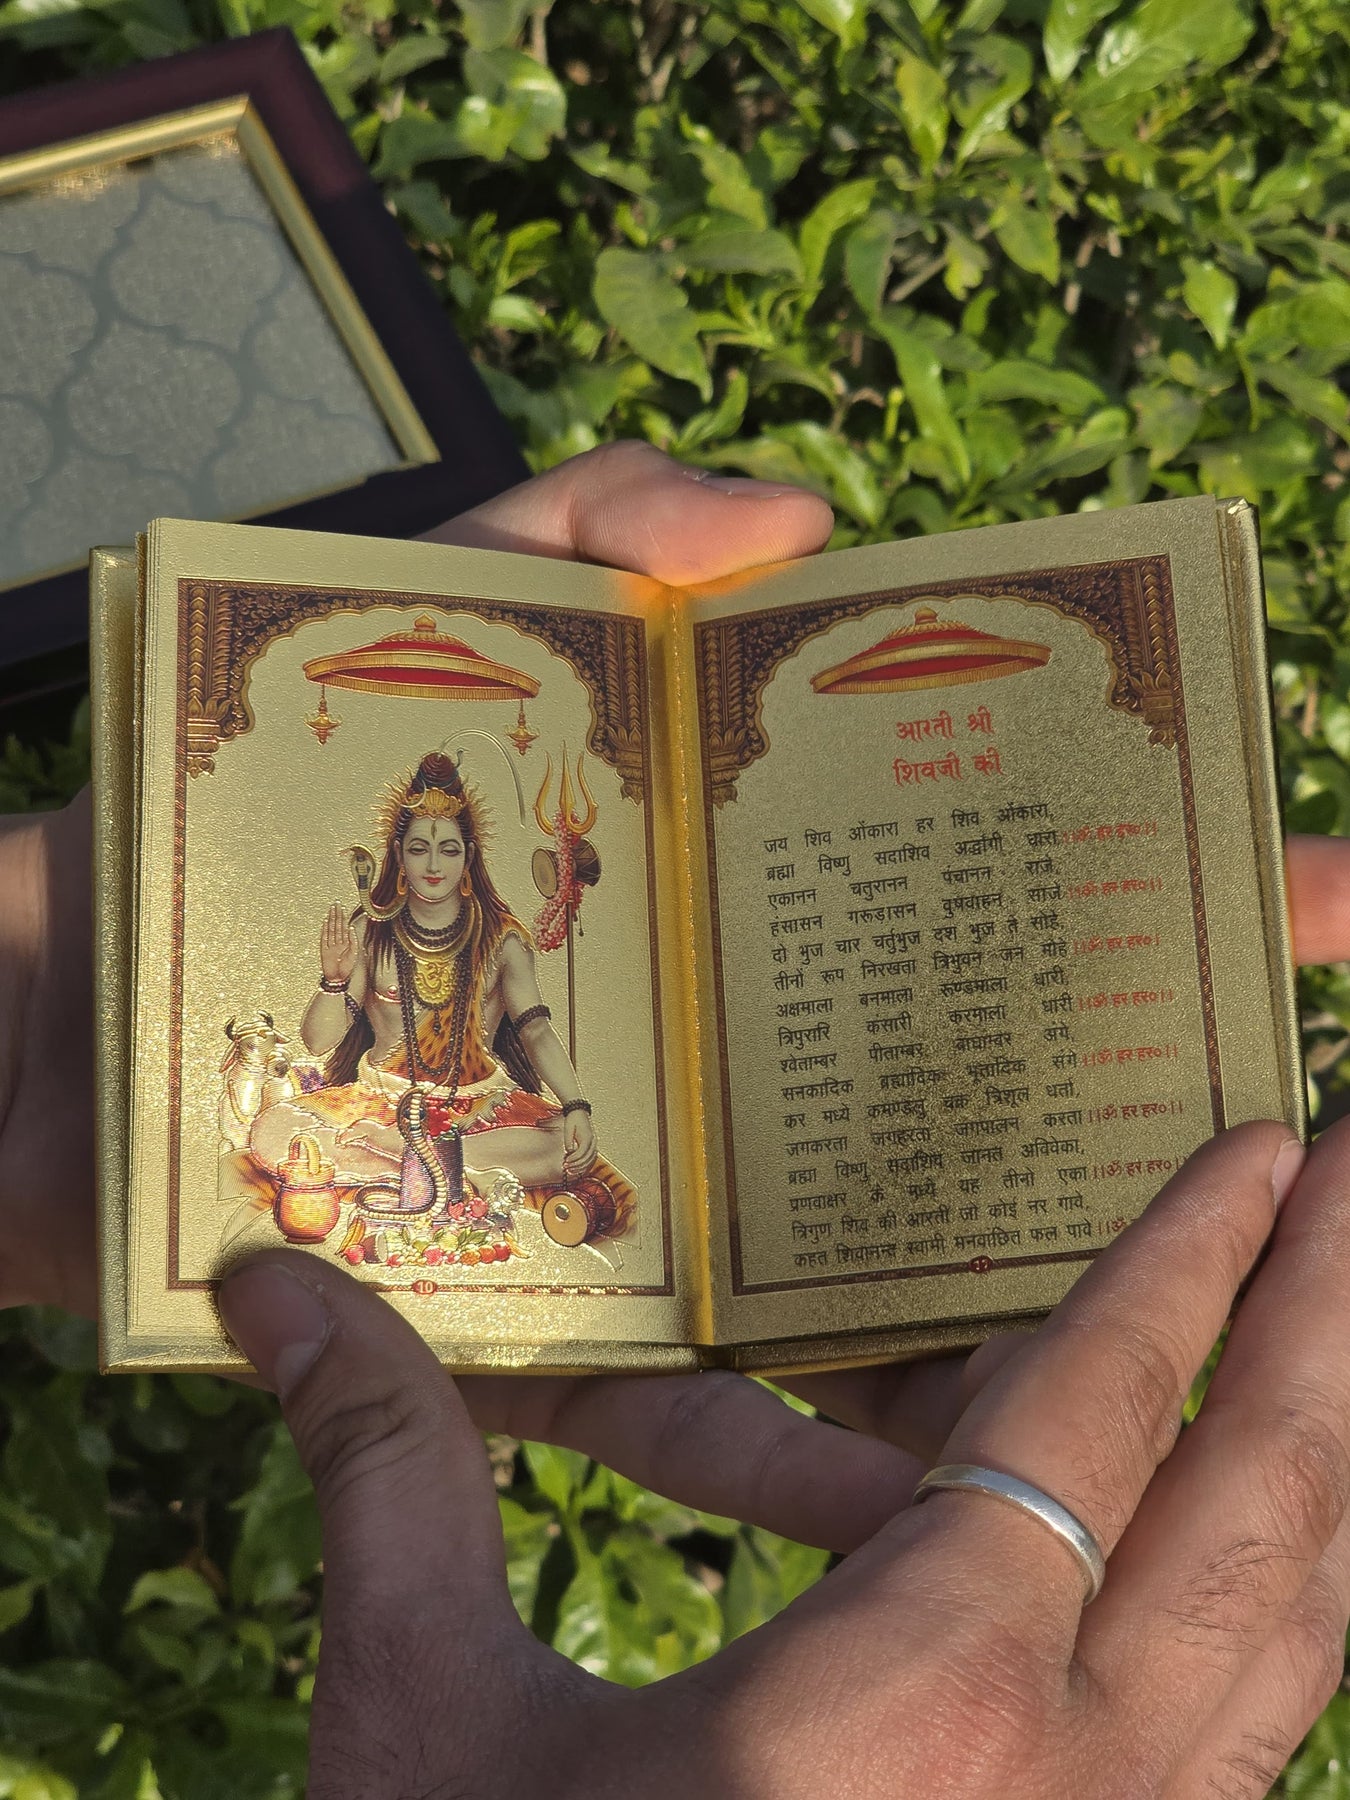 10
आरती श्री
शिवजी की
जय शिव ओंकारा हर शिव ओंकारा,
ब्रह्मा विष्णु सदाशिव अर्द्धांगी धारा ।।ॐ हर हर०।।
एकानन चतुरानन पंचानन राजे,
हंसासन गरूडासन वुषवाहन साजे ।।ॐ हर हर०।।
दो भुज चार चर्तुभुज दश भुज ते सोहे,
तीनों रूप निरखता त्रिभुवन जन मोहे ।।ॐ हर हर०।
अक्षमाला बनमाला रूण्डमाला धारी,
त्रिपुरारि कंसारी करमाला धारी ।।ॐ हर हर०।।
श्वेताम्बर पीताम्बर बाघाम्बर अंगे,
सनकादिक ब्रह्मादिक भूतादिक संगे ।।ॐ हर हर०।।
कर मध्ये कमण्डलु चक्र त्रिशूल धर्ता,
जगकरता जगहरता जगपालन करता ।।ॐ हर हर०।।
ब्रह्मा विष्णु सदाशिव जानत अविवेका,
प्रणवाक्षर के मध्ये यह तीनो एका ।।ॐ हर हर०।।
त्रिगुण शिव की आरती जो कोई नर गावे,
कहत शिवानन्द स्वामी मनवाछित फल पावे ।।ॐ